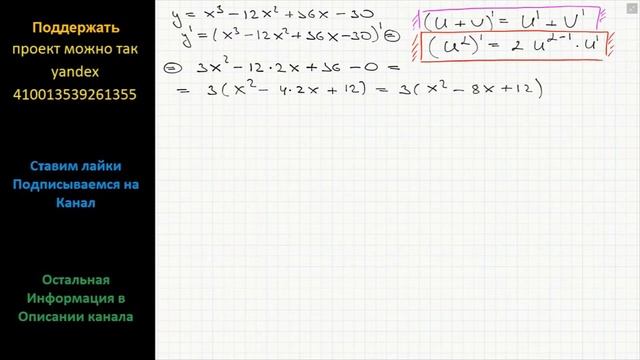 Поддержать
проект можно так
yandex
410013539261355
Ставим лайки
Подписываемся на
Канал
Остальная
Информация в
Описании канала
y = x³ - 12x² + 36x - 30
y' = (x³ - 12x² + 36x - 30)' =
= 3x² - 12·2x + 36 - 0 =
= 3(x² - 4·2x + 12) = 3(x² - 8x + 12)
(u + v)' = u' + v'
(u²)' = 2 u²⁻¹ · u'